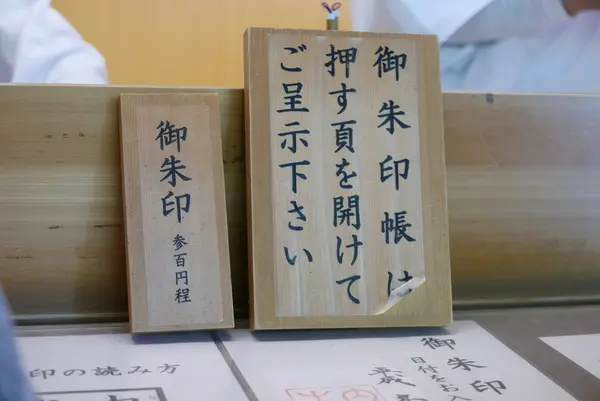 御朱印帳は
押す頁を開けて
ご呈示下さい
御朱印
参百円程
印の読み方
御朱印
日付をお